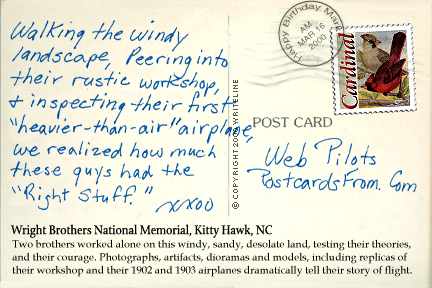 Walking the windy
landscape, Peering into
their rustic workshop,
& inspecting their first
"heavier-than-air" airplane,
we realized how much
these guys had the
"Right Stuff."
xxoo
Happy Birthday Mark
AM
MAR 16
2000
Cardinal
© COPYRIGHT 2000 WRITELINE
POST CARD
Web Pilots
PostcardsFrom.Com
Wright Brothers National Memorial, Kitty Hawk, NC
Two brothers worked alone on this windy, sandy, desolate land, testing their theories,
and their courage. Photographs, artifacts, dioramas and models, including replicas of
their workshop and their 1902 and 1903 airplanes dramatically tell their story of flight.